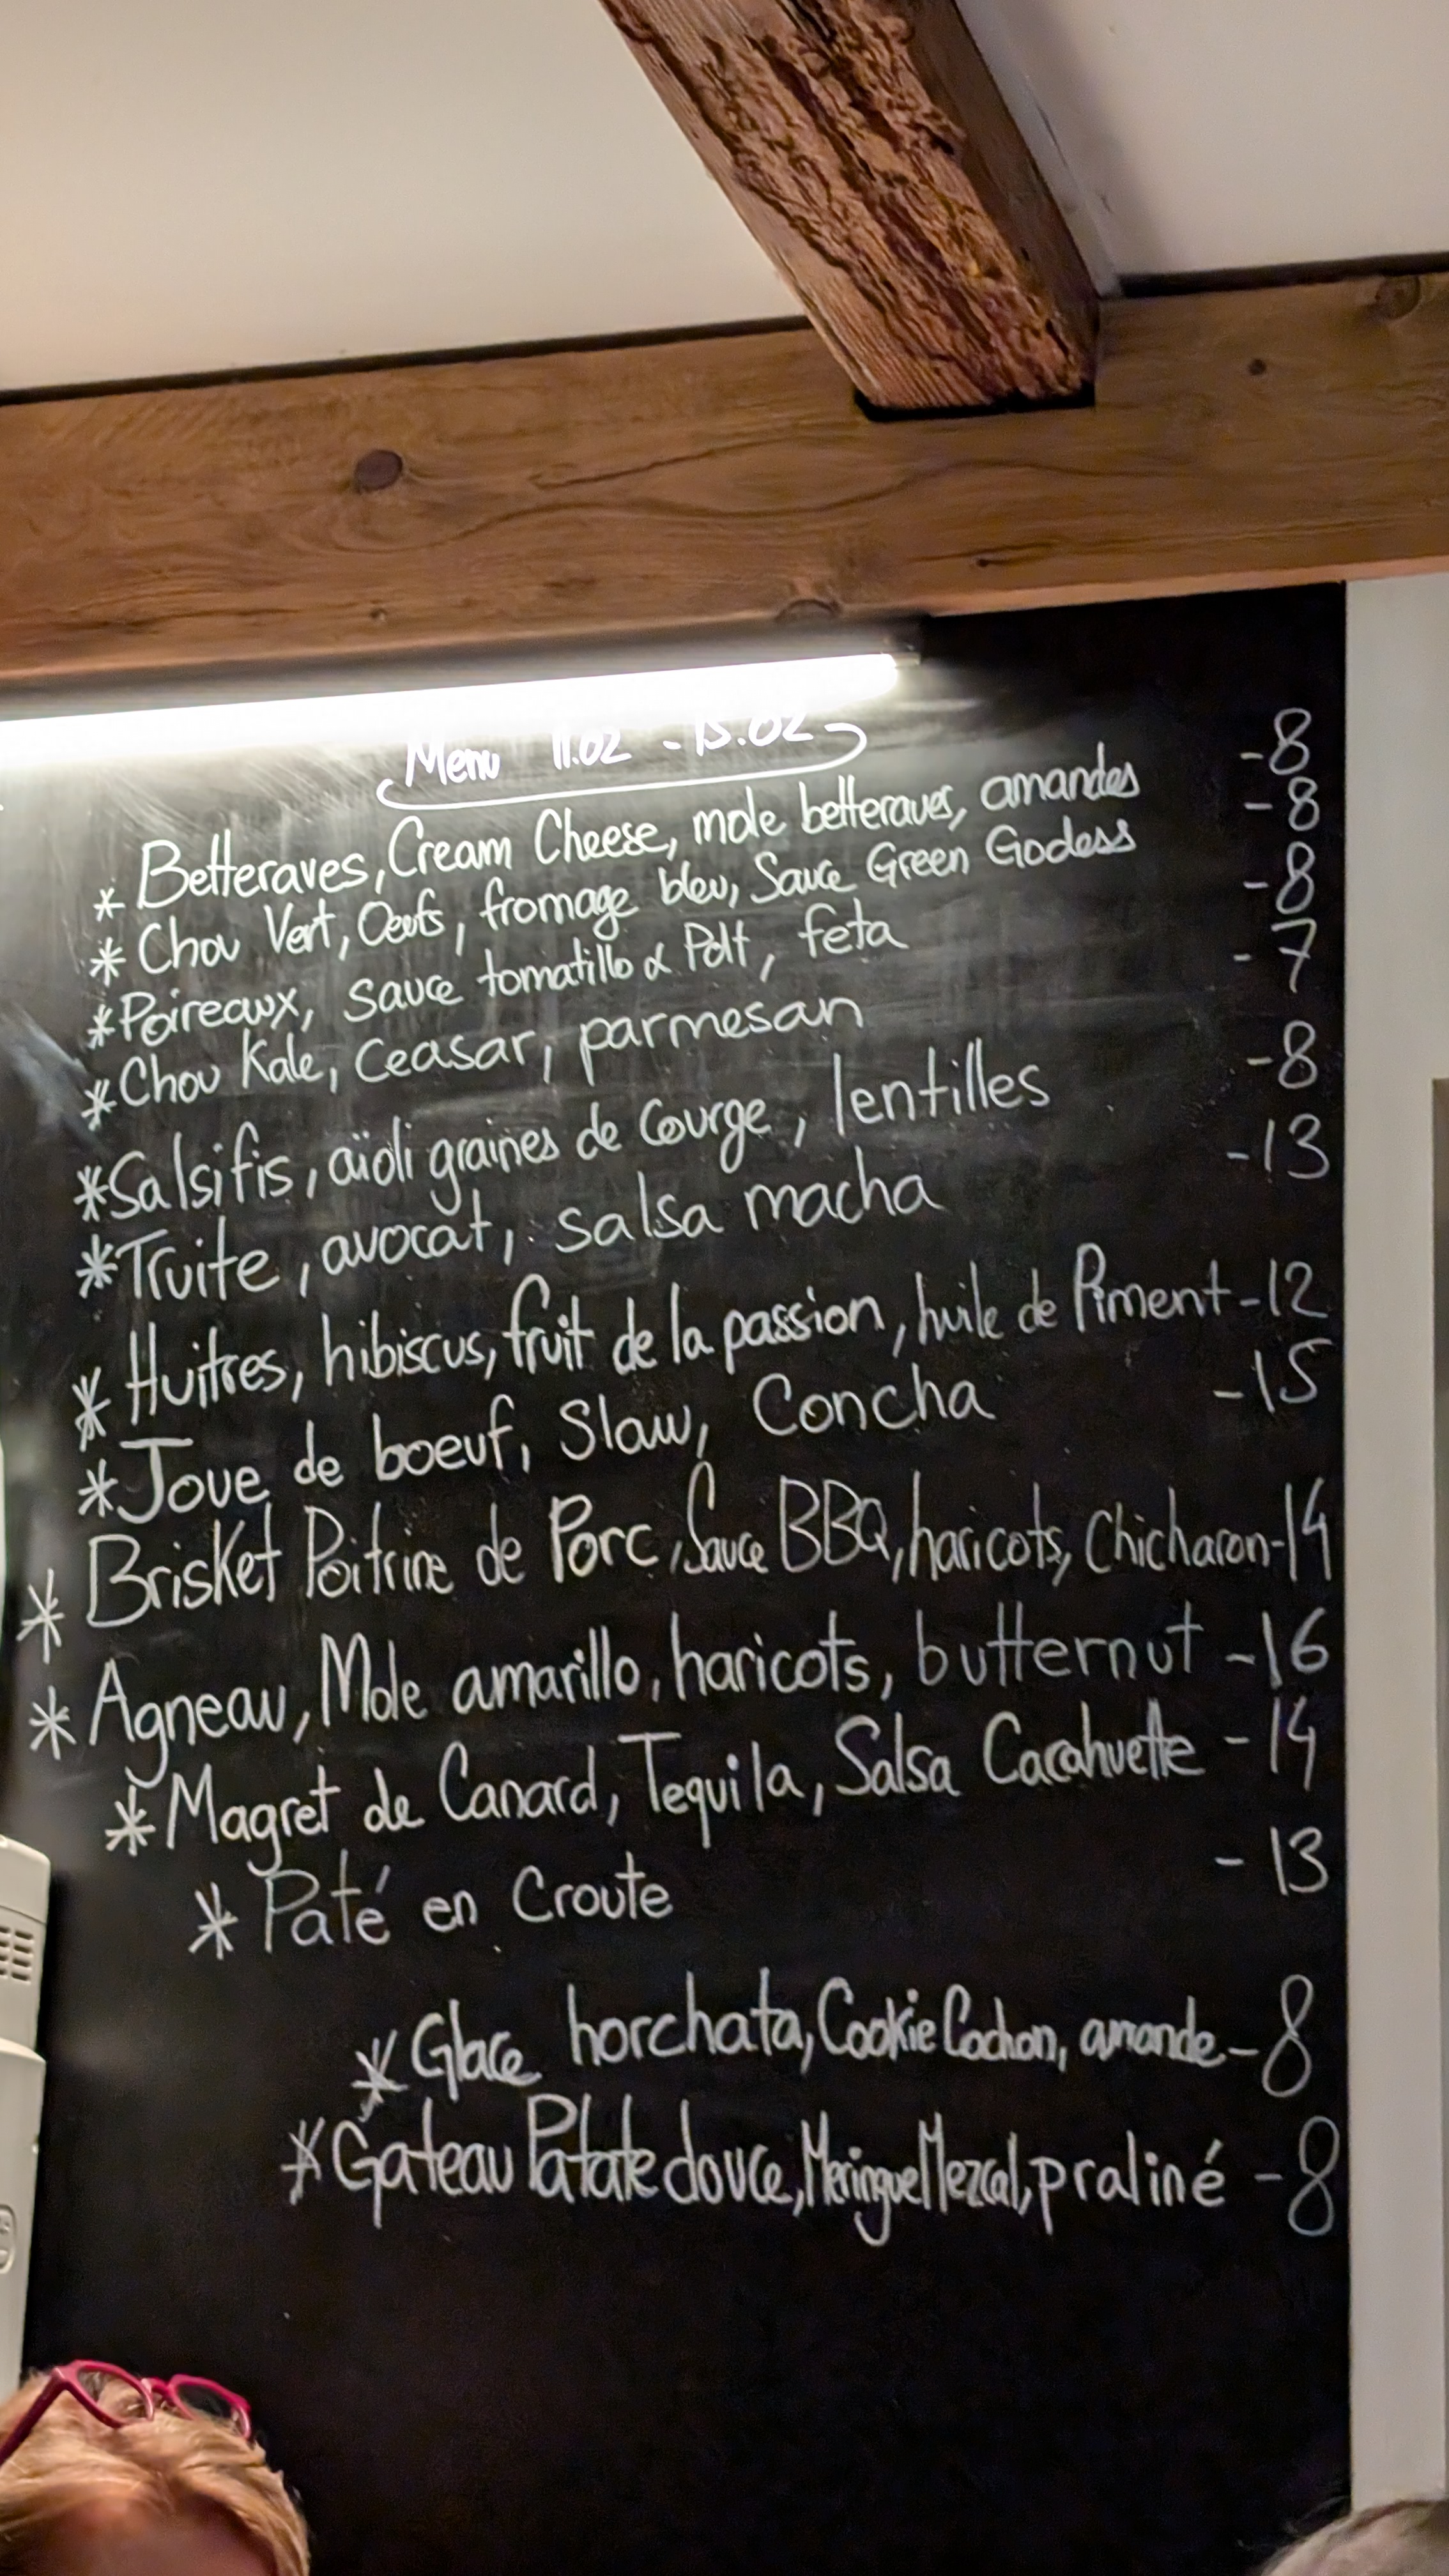 Menu 11.02 - 15.02
* Betteraves, Cream Cheese, mole betteraves, amandes -8
* Chou Vert, Oeufs, fromage bleu, Sauce Green Godess -8
* Poireaux, sauce tomatillo & Polt, feta -8
* Chou Kale, Ceasar, parmesan -7
* Salsifis, aïoli graines de Courge, lentilles -8
* Truite, avocat, salsa macha -13
* Huitres, hibiscus, fruit de la passion, huile de Piment -12
* Joue de boeuf, Slaw, Concha -15
* Brisket Poitrine de Porc, Sauce BBQ, haricots, Chicharon -14
* Agneau, Mole amarillo, haricots, butternut -16
* Magret de Canard, Tequila, Salsa Cacahuette -14
* Paté en Croute -13
* Glace horchata, Cookie Cochon, amande -8
* Gateau Patate douce, Meringue Mezcal, praliné -8